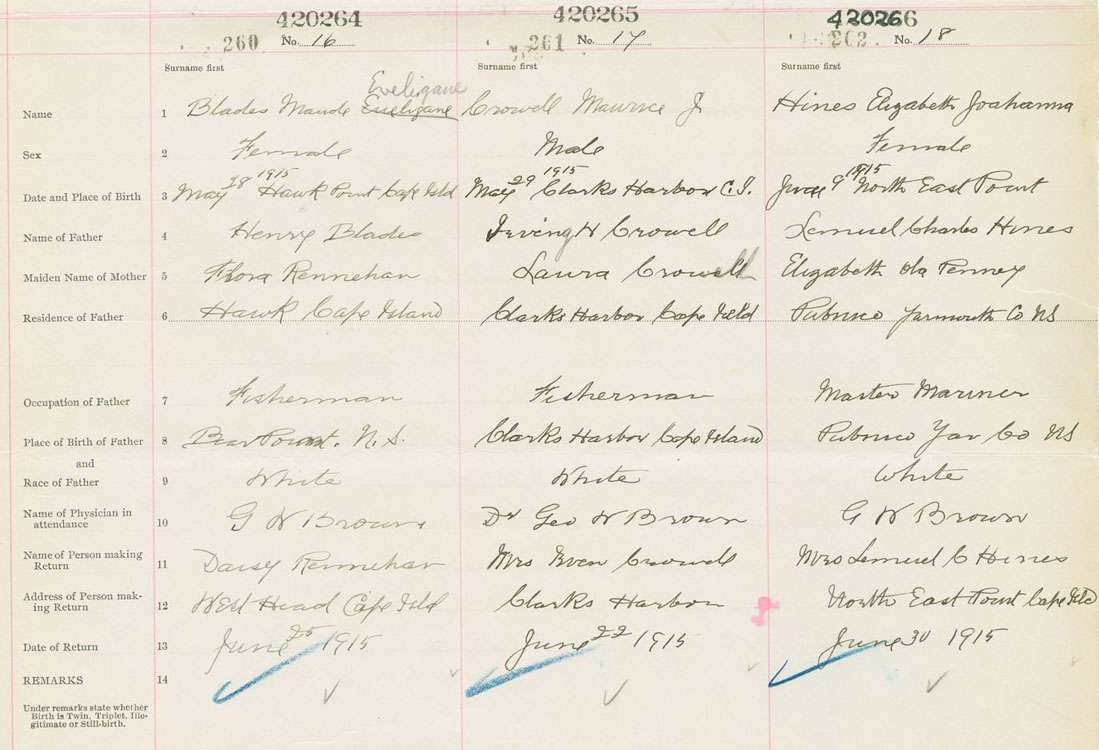 420264 420265 420266
260 No. 16 261 No. 17 262 No. 18
Surname first Surname first Surname first
Eveligane
Name 1 Blades Maude Crowell Maurice J Hines Elizabeth Joahanna
Sex 2 Female Male Female
Date and Place of Birth 3 May 28 1915 Hawk Point Cape Isld May 29 1915 Clarks Harbor C.I. June 9 1915 North East Point
Name of Father 4 Henry Blades Irving H Crowell Lemuel Charles Hines
Maiden Name of Mother 5 Flora Rennehan Laura Crowell Elizabeth Ida Penney
Residence of Father 6 Hawk Cape Island Clarks Harbor Cape Isld Pubnico Yarmouth Co NS
Occupation of Father 7 Fisherman Fisherman Master Mariner
Place of Birth of Father 8 Bear Point. N.S. Clarks Harbor Cape Island Pubnico Yar Co NS
and
Race of Father 9 White White White
Name of Physician in
attendance 10 G W Brown Dr Geo W Brown G W Brown
Name of Person making
Return 11 Daisy Rennehan Mrs Crowell Mrs Lemuel C Hines
Address of Person mak-
ing Return 12 West Head Cape Isld Clarks Harbor North East Point Cape Isld
Date of Return 13 June 25 1915 June 22 1915 June 30 1915
REMARKS 14
Under remarks state whether
Birth is Twin, Triplet, Ille-
gitimate or Still-birth.